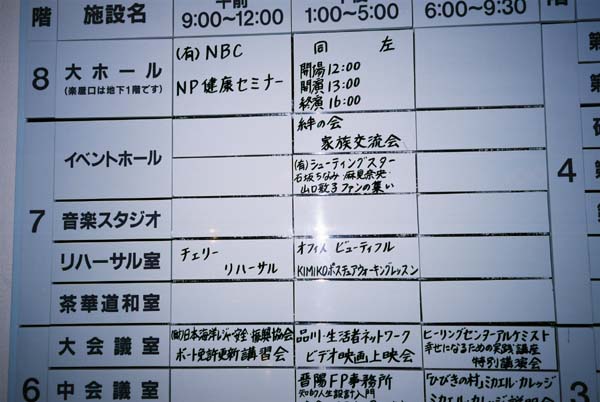 階 施設名 午前 9:00〜12:00 1:00〜5:00 6:00〜9:30 階
8 大ホール
(楽屋口は地下1階です)
(有)NBC
NP健康セミナー
同 左
開場12:00
開演13:00
終演16:00
7 イベントホール
絆の会
家族交流会
(有)シューティングスター
石坂ちなみ・麻見奈央・
山口敦子ファンの集い
4
音楽スタジオ
リハーサル室
チェリー
リハーサル
オフィス ビューティフル
KIMIKOポスチュアウォーキングレッスン
茶華道和室
6 大会議室
(財)日本海洋レジャー安全・振興協会
ボート免許更新講習会
品川・生活者ネットワーク
ビデオ映画上映会
ヒーリングセンターアルケミスト
幸せになるための実践講座
特別講演会
中会議室
晋陽FP事務所
知的人生設計入門
「ひびきの村」ミカエル・カレッジ
ミカエル・カレッジ説明会
3